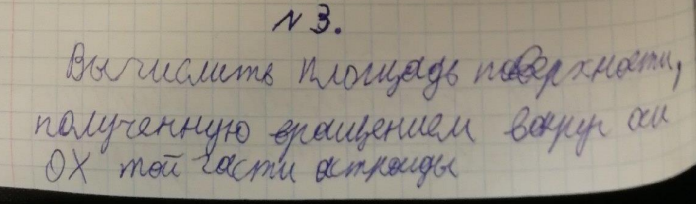 № 3.
Вычислить площадь поверхности,
полученную вращением вокруг оси
OX той части астроиды